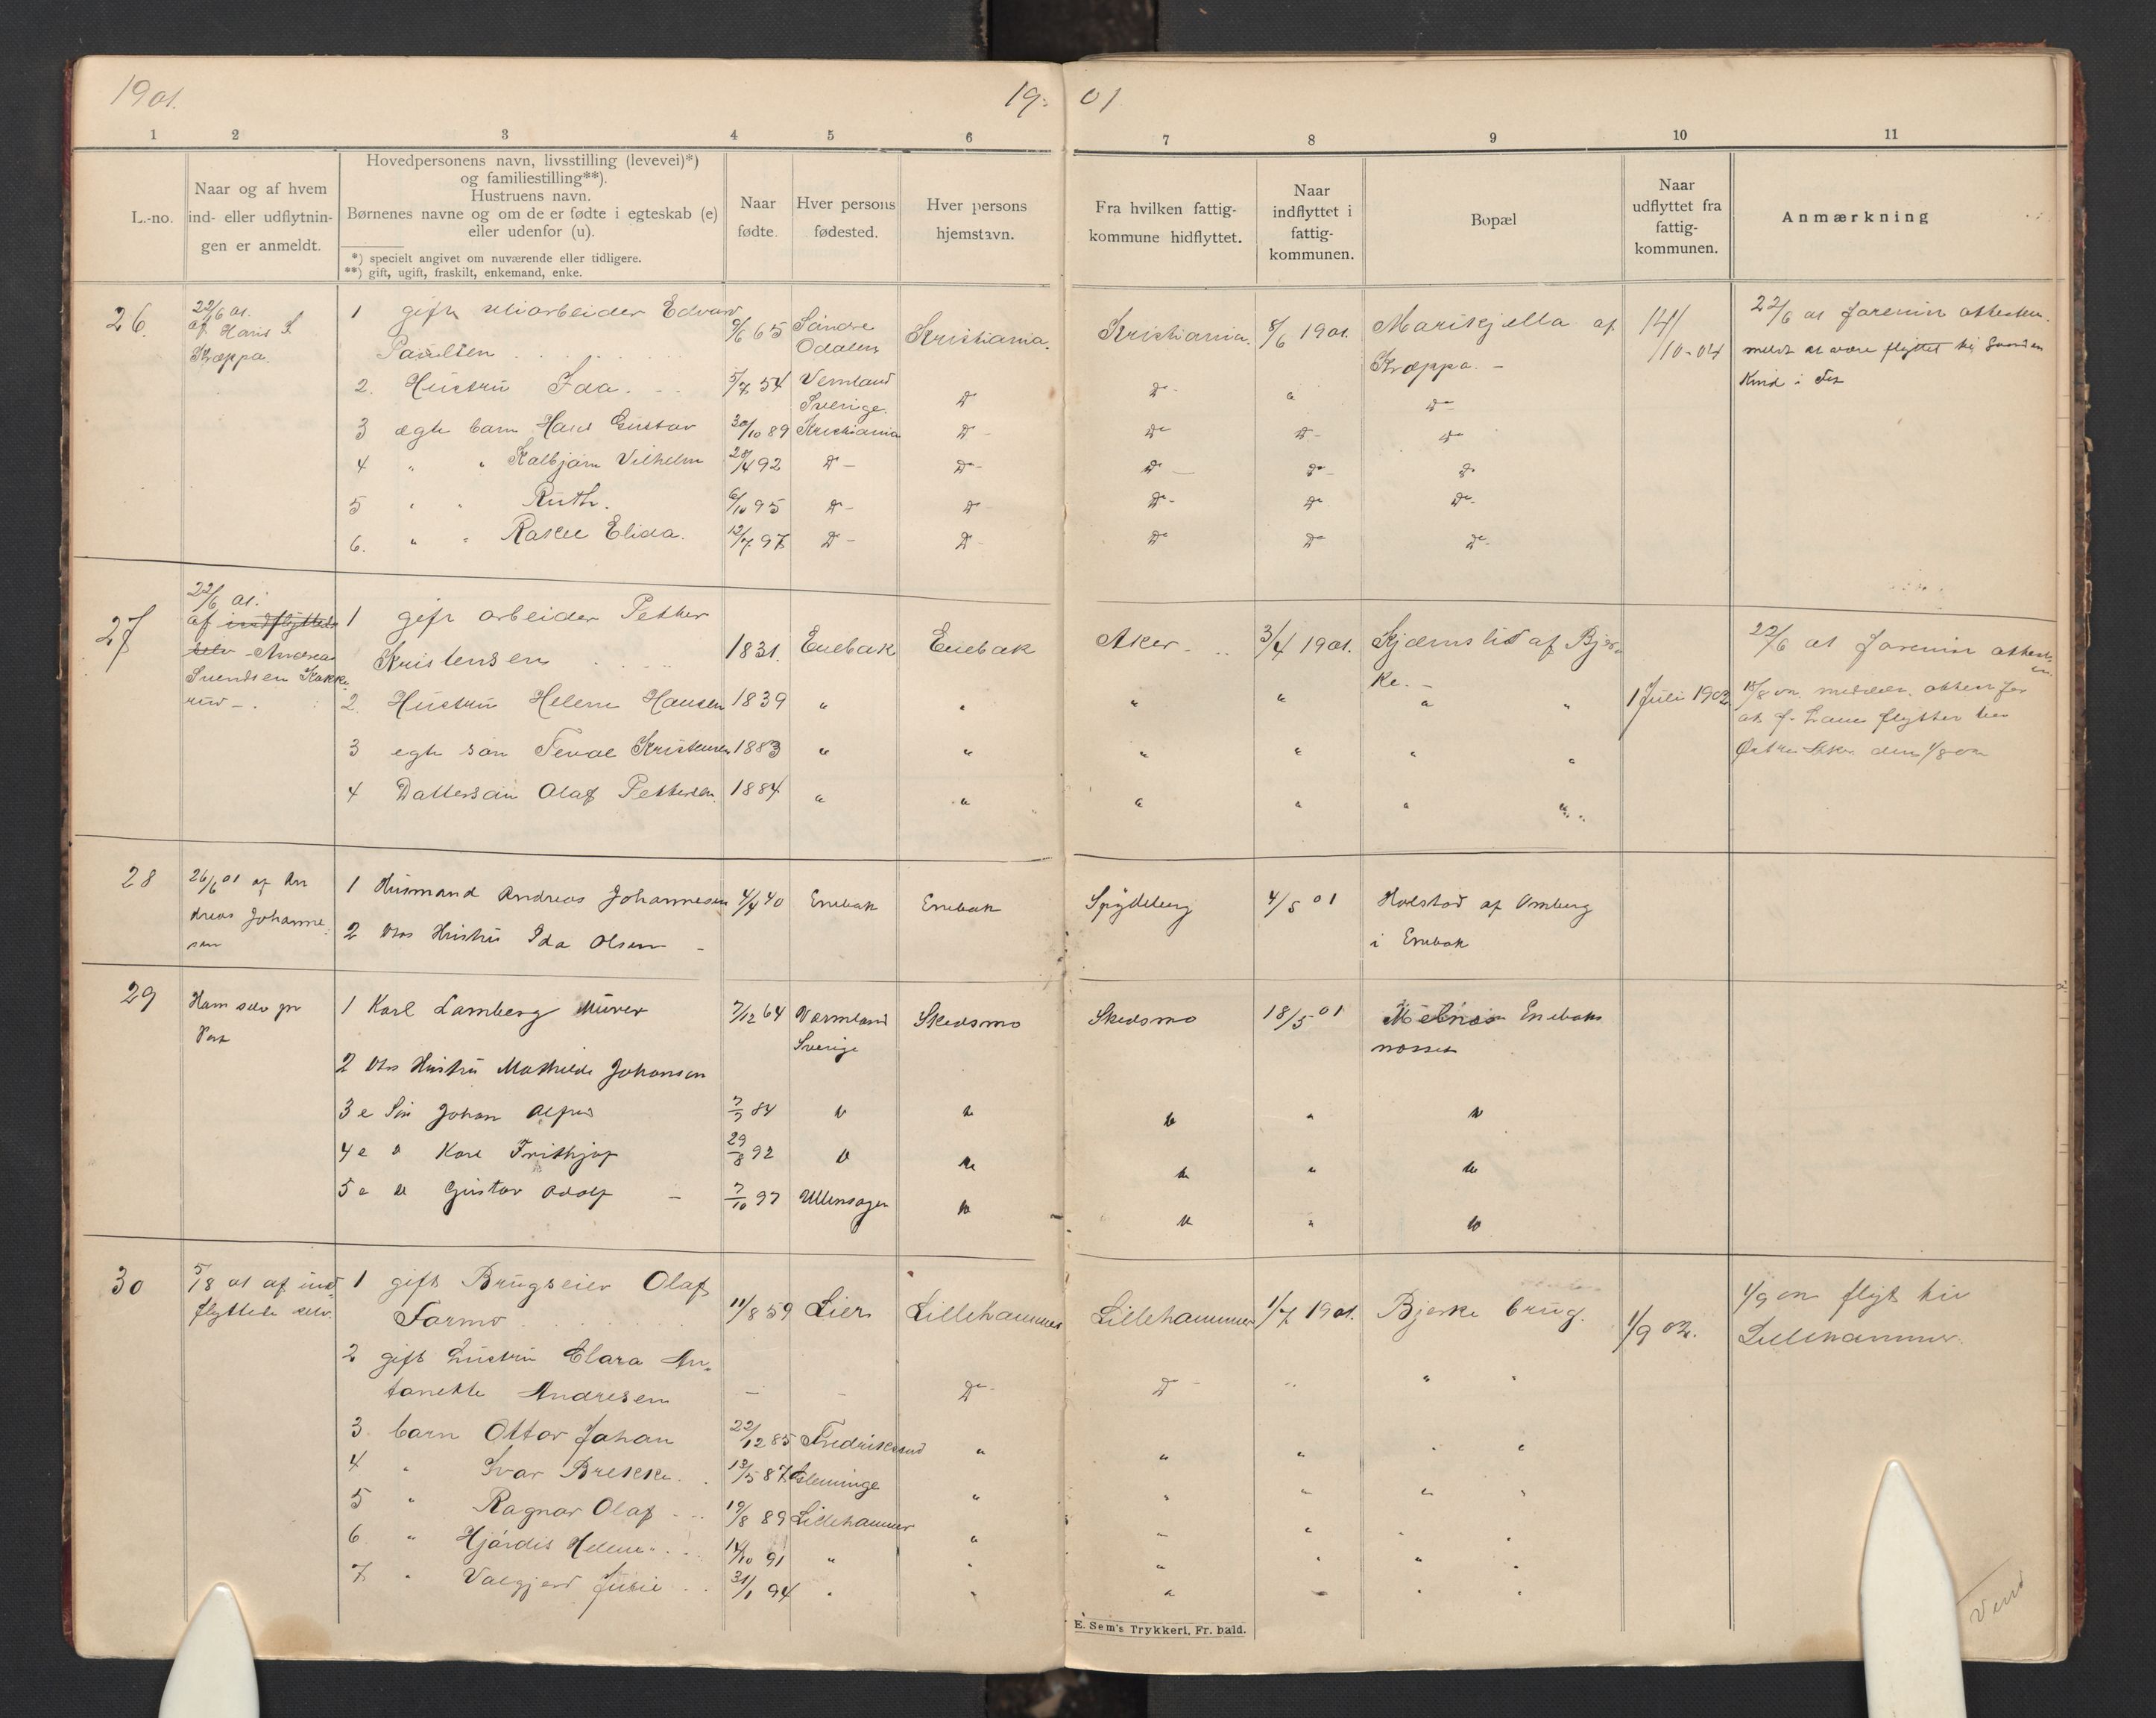 1901.
19-
01
1 2 3 4 5 6 7 8 9 10 11
L.-no.
Naar og af hvem
ind- eller udflytnin-
gen er anmeldt.
Hovedpersonens navn, livsstilling (levevei)*)
og familiestilling**).
Hustruens navn.
Børnenes navne og om de er fødte i egteskab (e)
eller udenfor (u).
*) specielt angivet om nuværende eller tidligere.
**) gift, ugift, fraskilt, enkemand, enke.
Naar
fødte.
Hver persons
fødested.
Hver persons
hjemstavn.
Fra hvilken fattig-
kommune hidflyttet.
Naar
indflyttet i
fattig-
kommunen.
Bopæl
Naar
udflyttet fra
fattig-
kommunen.
Anmærkning
26.
22/6 01.
af Hans S.
Kræppa.
1 gift Edvard
Paulsen
9/6 65 Søndre
Odalen
Kristiania.
Kristiania. 8/6 1901. Marikjella af
Kræppa. -
14/
/10-04
22/6 01
meldt at være flyttet til
i
2. Hustru Ida. 5/7 54 Vermland
Sverige. Do Do - " Do
3 ægte barn Hans Gustav 30/10 89 Kristiania Do - Do Do - Do
4 " " Kolbjørn Vilhelm 28/4 92 Do - Do - Do - Do - Do
5 " " Ruth. 6/10 95 Do - Do Do - Do Do -
6. " " Rakel Elida. 12/7 97 Do - Do - Do Do Do -
27
22/6 01.
af indflyttede
selv - Andreas
Svendsen Kakke-
rud -.
1 gift arbeider Petter
Kristensen 1831. Enebak Enebak
Aker. 3/4 1901. Kjærnslid af Bjer-
ke. -
22/6 01
2. Hustru Helene Hansen 1839 " " " " " "
1 Juli 1902
3 egte søn Kristensen 1883 " " " " " "
flytter
Østre Aker den 1/8 02
4 Dattersøn Olaf Pettersen. 1884 " " " " " "
28
26/6 01 af An
dreas Johanne-
sen
1 Husmand Andreas Johannesen 4/4 40 Enebak Enebak
Spydeberg 4/5 01 Holstad af Omberg
i Enebak
2 Hustru Ida Olsen -
29
Ham selv pr
Post
1 Karl Lamberg Murer 7/12 64 Vermland
Sverige Skedsmo
Skedsmo 18/5 01 Enebak
2 Hustru Mathilde Johansen
3 e Søn Johan Alfred 7/7 84
4 e " Karl Frithjof 29/8 92
5 e " Gustav Adolf - 7/10 97 Ullensager
30
5/8 01 af ind-
flyttede selv.
1 gift Brugseier Olaf
Formo 11/8 59 Lier Lillehammer
Lillehammer 1/7 1901. Bjerke brug. 1/9 02.
1/9 02 flyt til
Lillehammer.
2 gift hustru Clara An-
tonette Andresen - - Do - Do - " " "
3. barn Ottar Johan 22/12 85 Fredrikstad " " " " "
4 " Ivar Brekke 13/5 87 Glemminge " " " " "
5 " Ragnar Olaf 19/8 89 Lillehammer " " " " "
6 " Hjørdis Helene 14/10 91 " " " " " "
7. " Valgjerd Julie 31/1 94 " " " " " "
E. Sem's Trykkeri, Fr. hald.
Vend